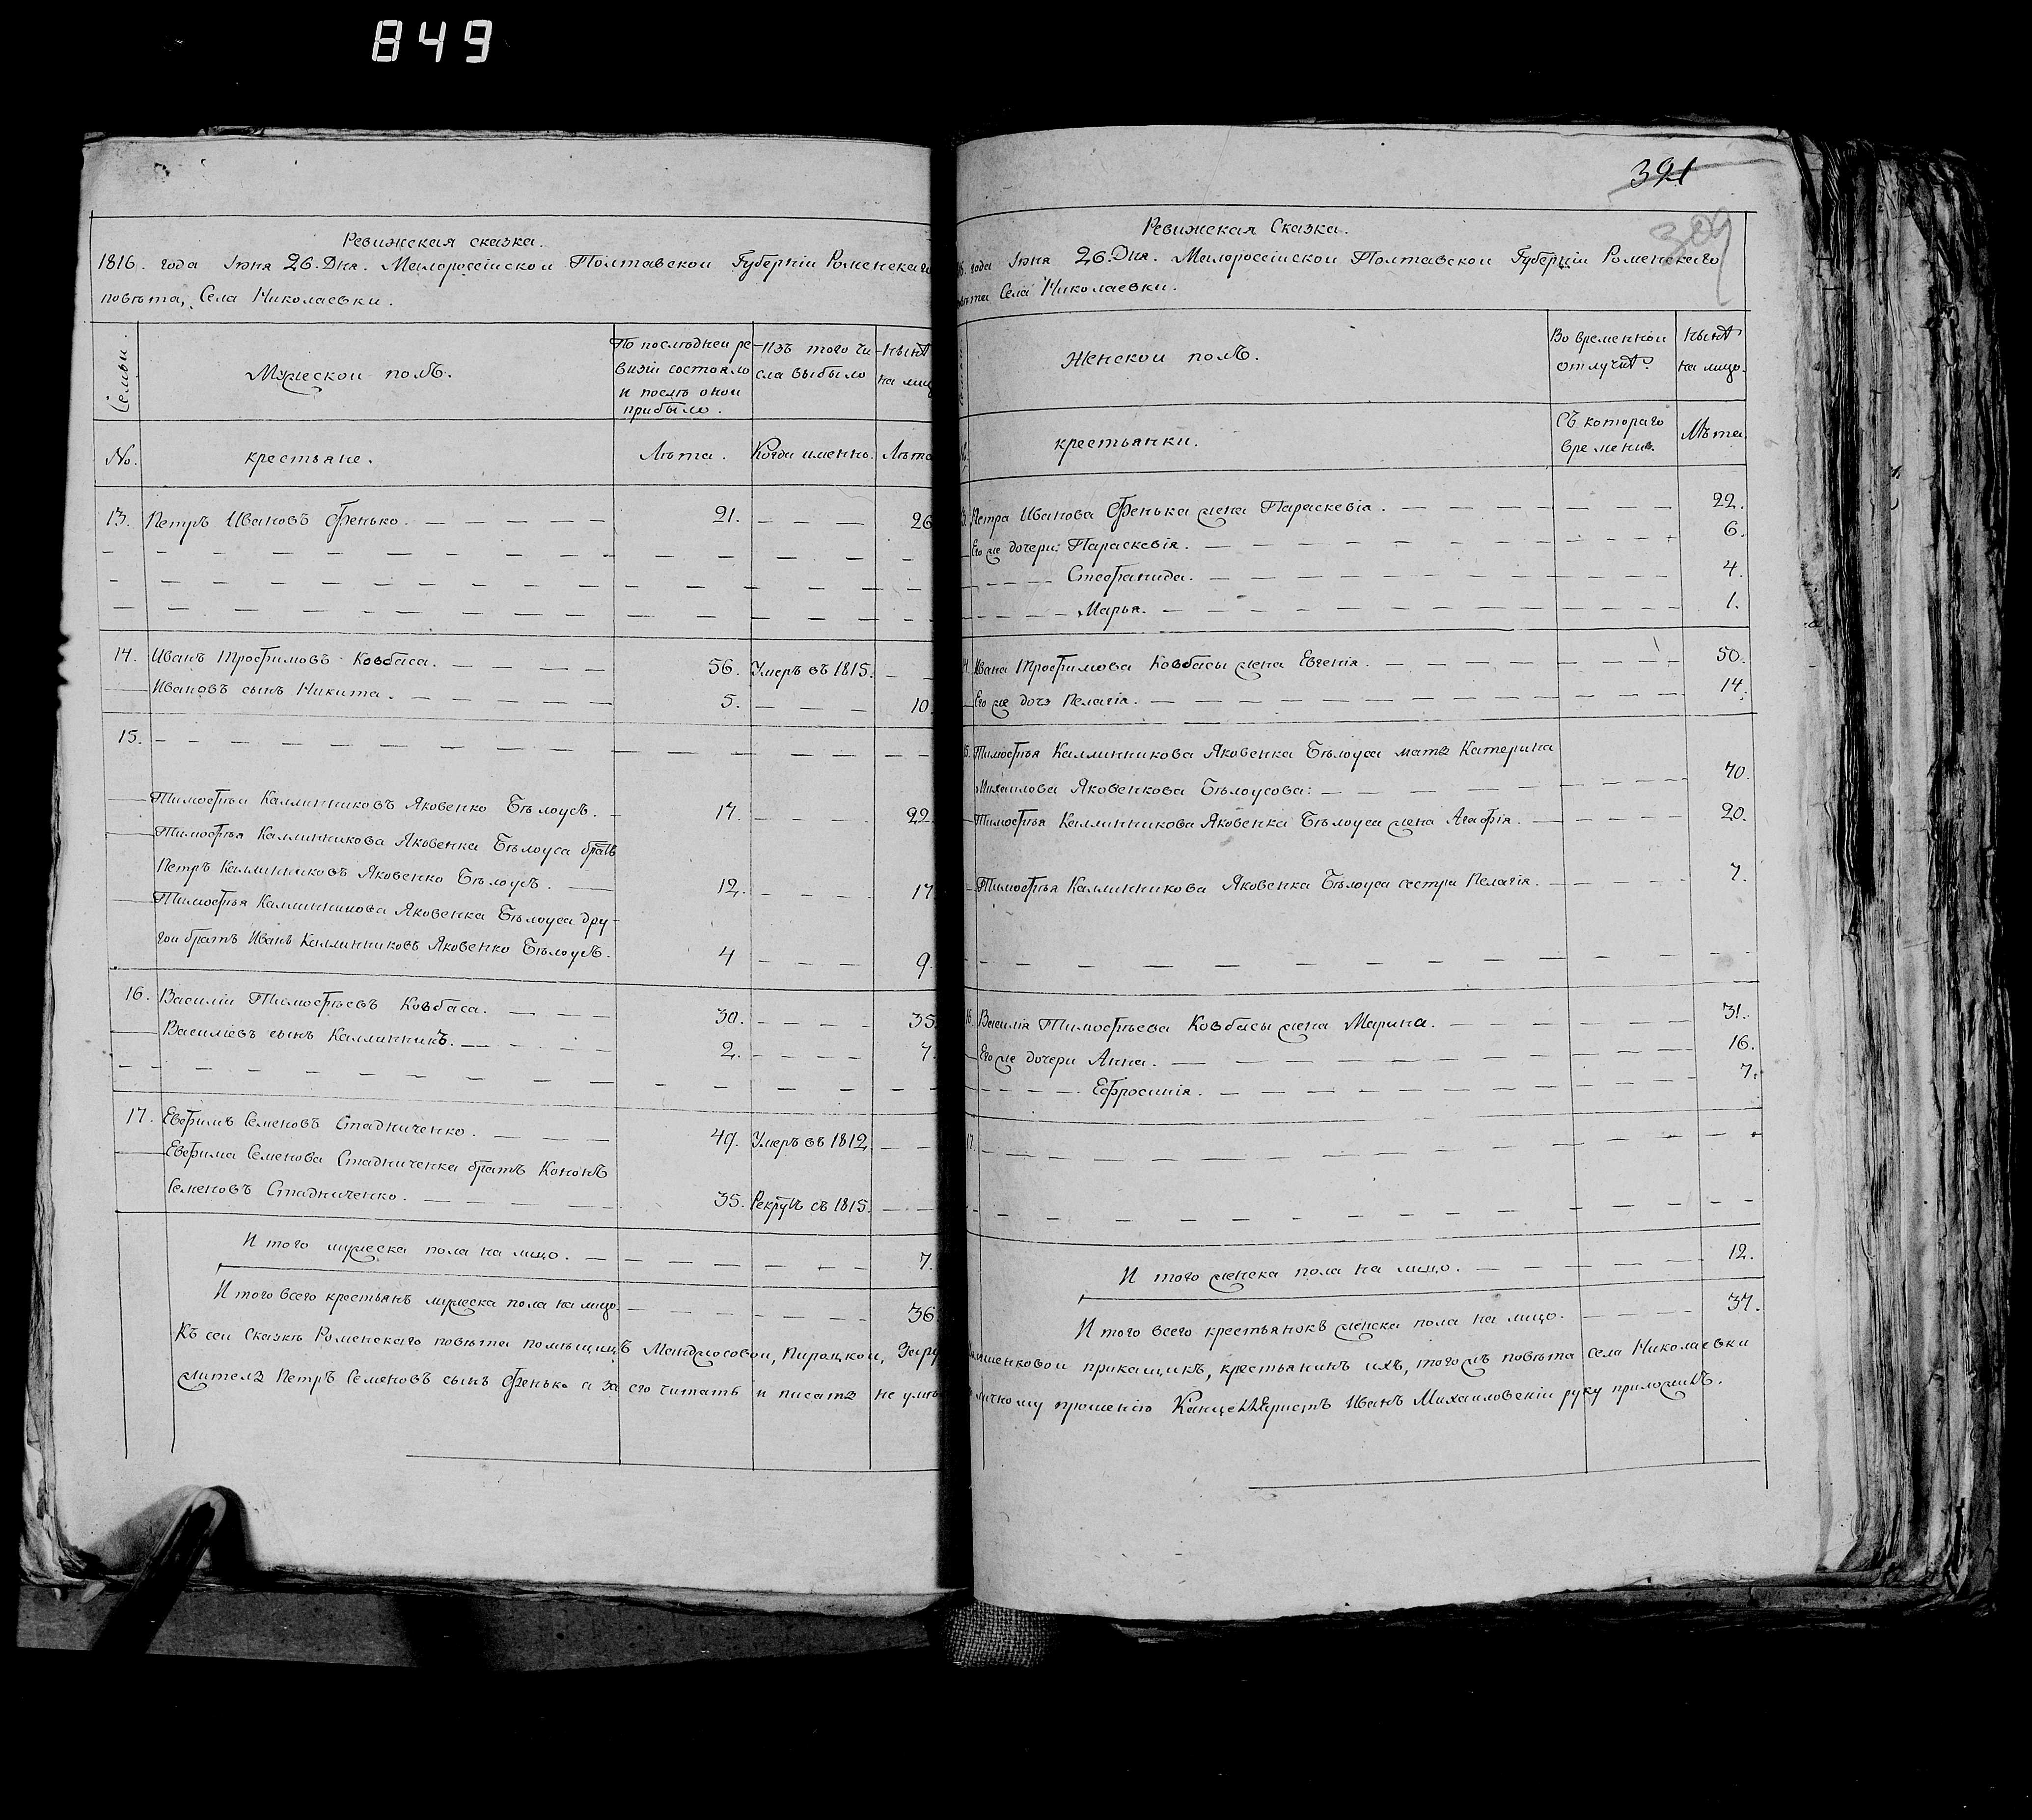 849
Ревижская сказка.
1816. года Іюня 26. Дня. Малороссіиской Полтавской Губерніи Роменскаго
повѣта, Села Николаевки.
Семьи.
Мужеской полъ.
По последней ре
визіи состояло
и послѣ оной
прибыло.
Изъ того чи
сла выбыло
Нынѣ
на лиц
No.
крестьяне.
Лѣта.
Когда именно.
Лѣта
13. Петръ Ивановъ Фенько. 21. 26
14. Иванъ Трофимовъ Ковбаса. 56. Умеръ въ 1815.
Ивановъ сынъ Никита. 5. 10.
15.
Тимофѣй Каллинниковъ Яковенко Бѣлоусъ. 17. 22.
Тимофѣя Каллинникова Яковенка Бѣлоуса братъ
Петръ Каллинниковъ Яковенко Бѣлоусъ. 12. 17
Тимофѣя Каллинникова Яковенка Бѣлоуса дру
гой братъ Иванъ Каллинниковъ Яковенко Бѣлоусъ. 4 9.
16. Василій Тимофѣевъ Ковбаса. 30. 35
Василіевъ сынъ Каллинникъ. 2. 7.
17. Евфимъ Семеновъ Стадниченко. 49. Умеръ въ 1812
Евфима Семенова Стадниченка братъ Кононъ
Семеновъ Стадниченко. 35. Рекрутъ съ 1815.
И того мужеска пола на лицо. 7.
И того всего крестьянъ мужеска пола на лицо. 36
Къ сей Сказкѣ Роменскаго повѣта помѣщицъ Мандрюсовой, Пироцкой,
жителъ Петръ Семеновъ сынъ Фенько а за его читать и писать не умѣ
391
309
Ревижская Сказка.
16. года Іюня 26. Дня. Малороссіиской Полтавской Губерніи Роменскаго
повѣта Села Николаевки.
Женской полъ.
Во временной
отлучкѣ
Нынѣ
на лицо.
крестьянки.
Съ котораго
времени.
Лѣта
13. Петра Иванова Фенька жена Параскевія. 22.
Его же дочери: Параскевія. 6.
Стефанида. 4.
Марья. 1.
14. Ивана Трофимова Ковбасы жена Евгенія. 50.
Его же дочь Пелагія. 14.
15. Тимофѣя Каллинникова Яковенка Бѣлоуса мать Катерина
Михаилова Яковенкова Бѣлоусова: 40.
Тимофѣя Каллинникова Яковенка Бѣлоуса жена Агафія. 20.
Тимофѣя Каллинникова Яковенка Бѣлоуса сестра Пелагія. 7.
16. Василія Тимофѣева Ковбасы жена Марина. 31.
Его же дочери Анна. 16.
Ефросинія. 7.
17.
И того женска пола на лицо. 12.
И того всего крестьянокъ женска пола на лицо. 37.
прикащикъ, крестьянинъ ихъ, того жъ повѣта села Николаевки
личному прошенію Канцеляристъ Иванъ Михаиловскій руку приложилъ.